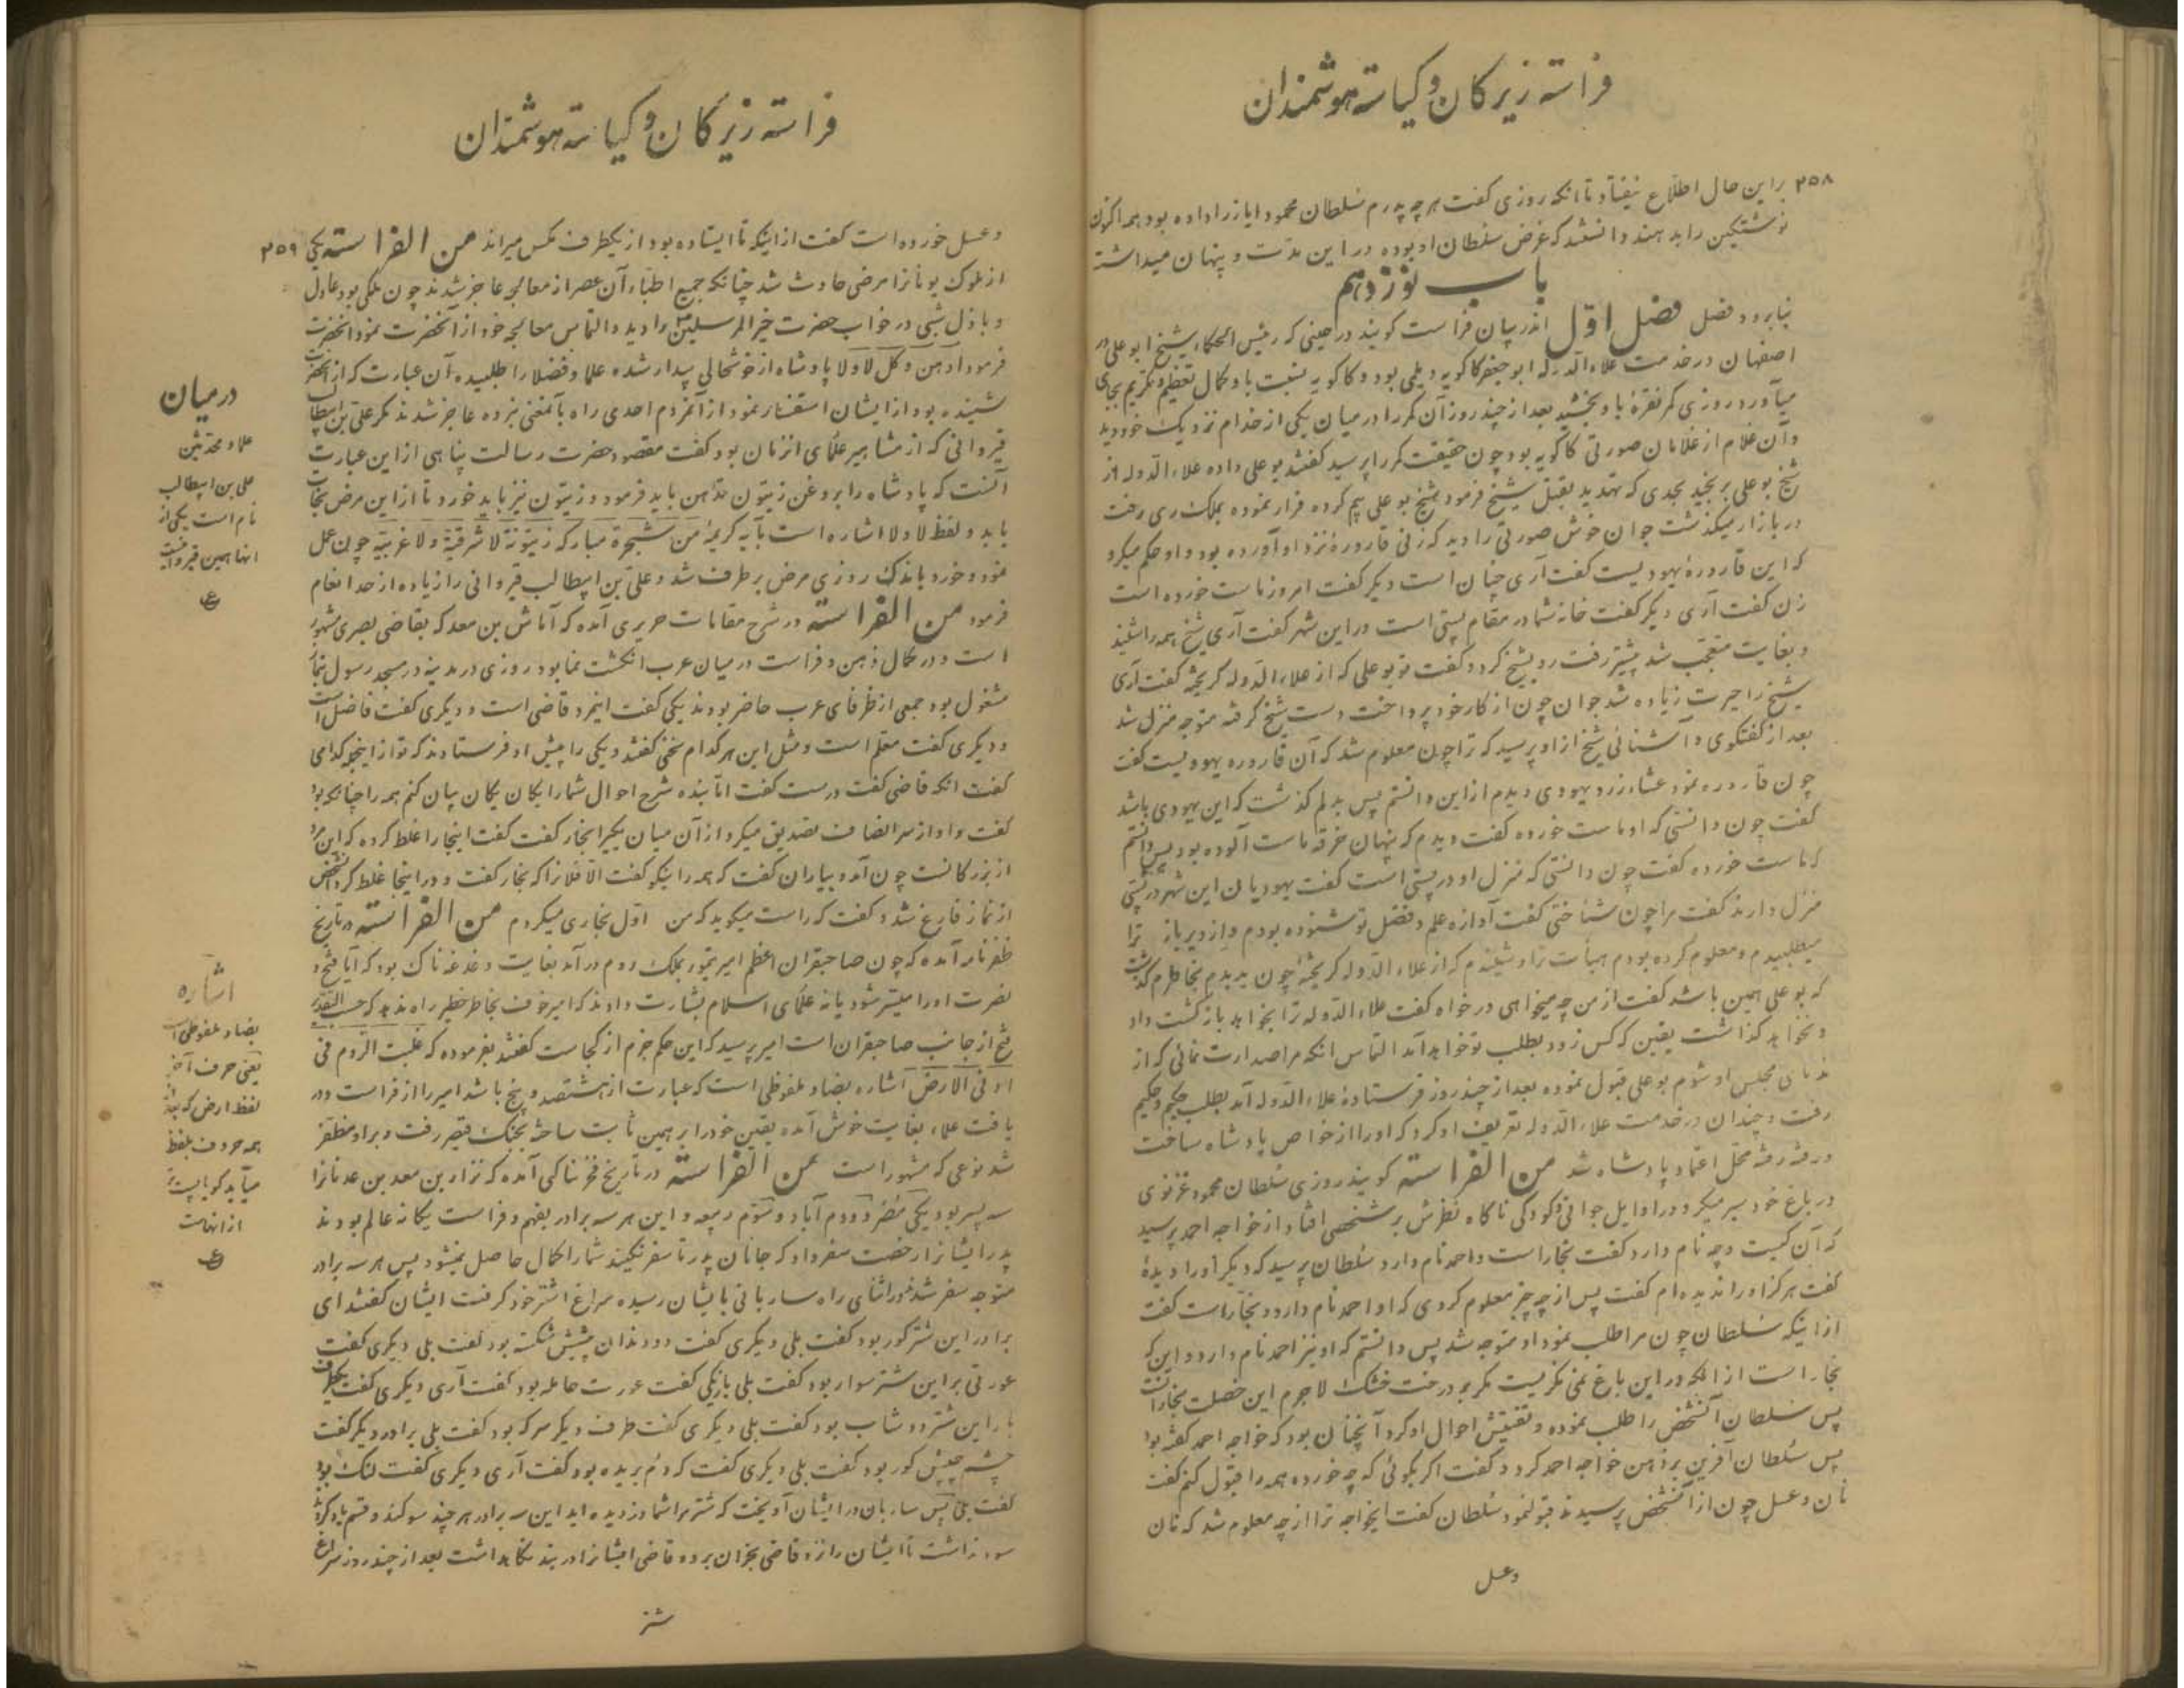 فراسته زیرکان و کیاسته هوشمندان
۲۵۸ براین حال اطلاع نیفتاد تا انکه روزی کفت هر چه پدرم سلطان محمود ایاز را داده بود همه اکنون
نوشتکین را بد هند دانستند که غرض سلطان او بوده در این مدت و پنهان میداشت
باب نوزدهم
بنابر دو فصل فصل اوّل اندر بیان فراست کویند در حینی که رئیس الحکماء شیخ ابو علی در
اصفهان در خدمت علاء الدوله ابو جعفر کاکویه دیلمی بود و کاکویه بنسبت باو کمال تعظیم و تکریم بجای
میآورد روزی کمر نقرۀ باو بخشید بعد از چند روز آن کمر را در میان یکی از خدام نزدیک خود دید
وآن غلام از غلامان صورتی کاکویه بود چون حقیقت کمر را پرسید کفتند بو علی داده علاء الدوله از
شیخ بو علی برنجید بحدی که تهدید بقتل شیخ فرمود شیخ بو علی بیم کرده فرار نموده بملک ری رفت
در بازار میکذشت جوان خوش صورتی را دید که زنی قارورۀ نزد او آورده بود و او حکم میکرد
که این قارورۀ یهودیست کفت آری چنان است دیکر کفت امروز ماست خورده است
زن کفت آری دیکر کفت خانه شما در مقام پستی است در این شهر کفت آری شیخ همه را شنید
و بغایت متعجب شد پیشتر رفت رو بشیخ کرد و کفت تو بو علی که از علاء الدوله کریخته کفت آری
شیخ را حیرت زیاده شد جوان چون از کار خود پرداخت دست شیخ کرفته متوجه منزل شد
بعد از کفتکوی و آشنائی شیخ از او پرسید که ترا چون معلوم شد که آن قاروره یهودیست کفت
چون قاروره نمود غشاء زرد یهودی دیدم از این دانستم پس بدلم کذشت که این یهودی باشد
کفت چون دانستی که او ماست خورده کفت دیدم که پنهان خرقه ماست آلوده بود پس دانستم
که ماست خورده کفت چون دانستی که منزل او در پستی است کفت یهودیان این شهر در پستی
منزل دارند کفت مرا چون شناختی کفت آوازه علم و فضل تو شنوده بودم واز دیر باز ترا
میطلبیدم و معلوم کرده بودم هیأت ترا و شنیدم که از علاء الدوله کریخته چون بدیدم بخاطرم کذشت
که بو علی همین باشد کفت از من چه میخواهی در خواه کفت علاء الدوله ترا بخواهد باز کشت داد
و نخواهد کذاشت یقین که کس زود بطلب تو خواهد آمد التماس انکه مرا صدارت نمائی که از
ندمای مجلس او شوم بو علی قبول نموده بعد از چند روز فرستادۀ علاء الدوله آمد بطلب حکیم و حکیم
رفت و چندان در خدمت علاء الدوله تعریف او کرد که اورا از خواص پادشاه ساخت
و رفته رفته محل اعتماد پادشاه شد من الفراسته کویند روزی سلطان محمود غزنوی
در باغ خود سیر میکرد و در اوایل جوانی و کودکی ناکاه نظرش بر شخصی افتاد از خواجه احمد پرسید
که آن کیست و چه نام دارد کفت نجار است و احمد نام دارد سلطان پرسید که دیکر اورا دیدۀ
کفت هرکز اورا ندیده ام کفت پس از چه چیز معلوم کردی که او احمد نام دارد و نجار است کفت
از اینکه سلطان چون مرا طلب نمود او متوجه شد پس دانستم که او نیز احمد نام دارد و این که
نجار است از انکه در این باغ نمی نکریست مکر بر درخت خشک لاجرم این خصلت نجار انست
پس سلطان آنشخص را طلب نموده و تفتیش احوال او کرد آنچنان بود که خواجه احمد کفته بود
پس سلطان آفرین بر ذهن خواجه احمد کرد و کفت اکر بکوئی که چه خورده همه را قبول کنم کفت
نان و عسل چون از آنشخص پرسیدند قبول نمود سلطان کفت ایخواجه ترا از چه معلوم شد که نان
وعسل
فراسته زیرکان و کیاسته هوشمندان
وعسل خورده است کفت از اینکه تا ایستاده بود از یکطرف مکس میراند من الفراسته یکی ۲۵۹
از ملوک یونانرا مرضی حادث شد چنانکه جمیع اطباء آن عصر از معالجه عاجز شدند چون ملکی بود عادل
و باذل شبی در خواب حضرت خیر المرسلین را دید والتماس معالجه خود از آنحضرت نمود انحضرت
فرمود ادهن وکل لا ولا پادشاه از خوشحالی بیدار شده علما و فضلا را طلبیده آن عبارت که از انحضرت
شنیده بود از ایشان استفسار نمود از آنمردم احدی راه بآنمعنی نبرده عاجز شدند مکر علی بن ابیطالب
قیروانی که از مشاهیر علمای انزمان بود کفت مقصود حضرت رسالت پناهی از این عبارت
آنست که پادشاه را بروغن زیتون تدهین باید فرمود و زیتون نیز باید خورد تا از این مرض نجات
یابد و لفظ لا ولا اشاره است بآیه کریمۀ من شجرة مبارکة زیتونة لا شرقیة ولا غربیة چون عمل
نمود و خورد باندک روزی مرض برطرف شد و علی بن ابیطالب قیروانی را زیاده از حد انعام
فرمود من الفراسته در شرح مقامات حریری آمده که آیاش بن معد که بقاضی بصری مشهور
است و در کمال ذهن و فراست در میان عرب انکشت نما بود روزی در مدینه در مسجد رسول بنماز
مشغول بود جمعی از ظرفای عرب حاضر بودند یکی کفت اینمرد قاضی است و دیکری کفت فاضل است
و دیکری کفت معلم است و مثل این هر کدام سخنی کفتند و یکی را پیش او فرستادند که تو از اینجمله کدامی
کفت انکه قاضی کفت درست کفت اما بنده شرح احوال شما را یکان یکان بیان کنم همه را چنانکه بود
کفت واو از سر انصاف تصدیق میکرد از آن میان یکیرا نجار کفت کفت اینجا را غلط کرده که این مرد
از بزرکانست چون آمد بیاران کفت که همه را نیکو کفت الا فلانرا که نجار کفت و در اینجا غلط کرد انشخص
از نماز فارغ شد و کفت که راست میکوید که من اوّل نجاری میکردم من الفراسته در تاریخ
ظفر نامه آمده که چون صاحبقران اعظم امیر تیمور بملک روم در آمد بغایت دغدغه ناک بود که آیا فتح و
نصرت اورا میسر شود یا نه علمای اسلام بشارت دادند که امیر خوف بخاطر خطیر راه ندهد که حسب التقدیر
فتح از جانب صاحبقران است امیر پرسید که این حکم جزم از کجاست کفتند بفرموده که غلبت الروم فی
ادنی الارض اشاره بضاد ملفوظی است که عبارت از هشتصد و پنج باشد امیر را از فراست و در
یافت علماء بغایت خوش آمده یقین خود را بر همین ثابت ساخته بجنک قیصر رفت و بر او مظفر
شد نوعی که مشهور است من الفراسته در تاریخ فخر بناکی آمده که نزار بن معد بن عدنانرا
سه پسر بود یکی مضر و دوم آباد و سوم ربیعه و این هر سه برادر بفهم و فراست یکانه عالم بودند
پدر ایشانرا رخصت سفر داد که جانان پدر تا سفر نکنید شما را کمال حاصل نمیشود پس هر سه برادر
متوجه سفر شدند در اثنای راه ساربانی بایشان رسیده سراغ اشتر خود کرفت ایشان کفتند ای
برادر این شتر کور بود کفت بلی دیکری کفت دو دندان پیشش شکسته بود کفت بلی دیکری کفت
عورتی بر این شتر سوار بود کفت بلی باز یکی کفت عورت حامله بود کفت آری دیکری کفت یکطرف
بار این شتر دوشاب بود کفت بلی دیکری کفت طرف دیکر سرکه بود کفت بلی برادر دیکر کفت
چشم چپش کور بود کفت بلی دیکری کفت که دم بریده بود کفت آری دیکری کفت لنک بود
کفت بلی پس ساربان در ایشان آویخت که شتر مرا شما دزدیده اید این سه برادر هر چند سوکند و قسم یاد کردند
سود نداشت تا ایشان را نزد قاضی نجران برده قاضی ایشانرا در بند نکاهداشت بعد از چند روز سراغ
شتر
درمیان
علماء ومحدثین
علی بن ابیطالب
نام است یکی از
انها همین قیروانیست
اشاره
بضاد ملفوظی است
یعنی حرف آخر
لفظ ارض که بعد از
همه حروف بلفظ
میآید کویا پست تر
از انهاست